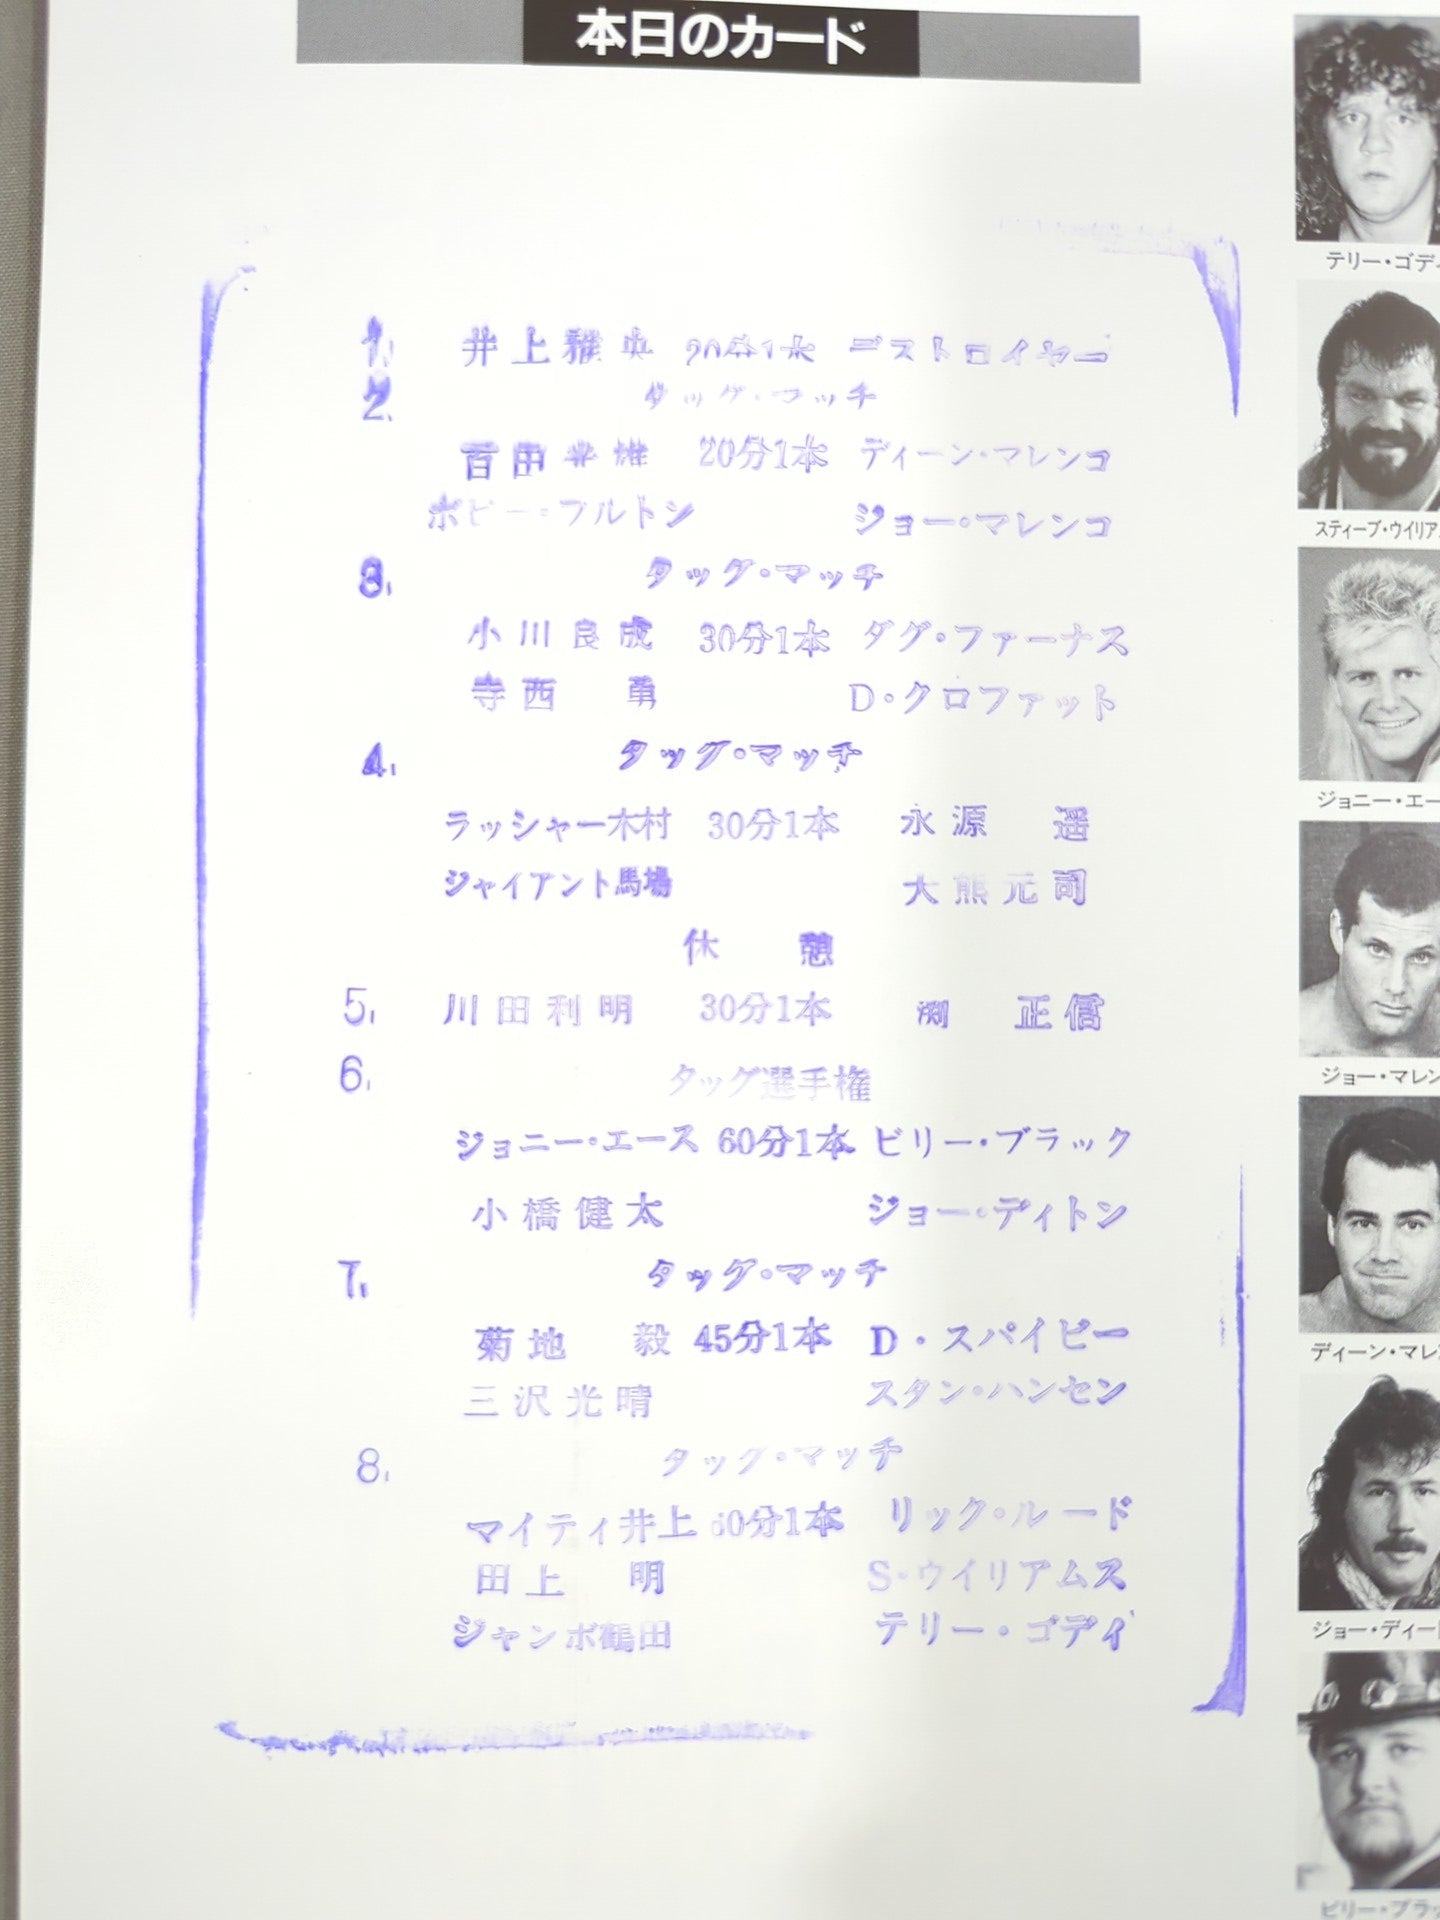 本日のカード
1. 井上雅央 20分1本 デストロイヤー
2. タッグ・マッチ
百田光雄 20分1本 ディーン・マレンコ
ボビー・フルトン ジョー・マレンコ
3. タッグ・マッチ
小川良成 30分1本 ダグ・ファーナス
寺西 勇 D・クロファット
4. タッグ・マッチ
ラッシャー木村 30分1本 永源 遥
ジャイアント馬場 大熊元司
休 憩
5. 川田利明 30分1本 渕 正信
6. タッグ選手権
ジョニー・エース 60分1本 ビリー・ブラック
小橋健太 ジョー・ディトン
7. タッグ・マッチ
菊地 毅 45分1本 D・スパイビー
三沢光晴 スタン・ハンセン
8. タッグ・マッチ
マイティ井上 60分1本 リック・ルード
田上 明 S・ウイリアムス
ジャンボ鶴田 テリー・ゴディ
テリー・ゴデ
スティーブ・ウイリア
ジョニー・エー
ジョー・マレン
ディーン・マレ
ジョー・ディー
ビリー・ブラッ